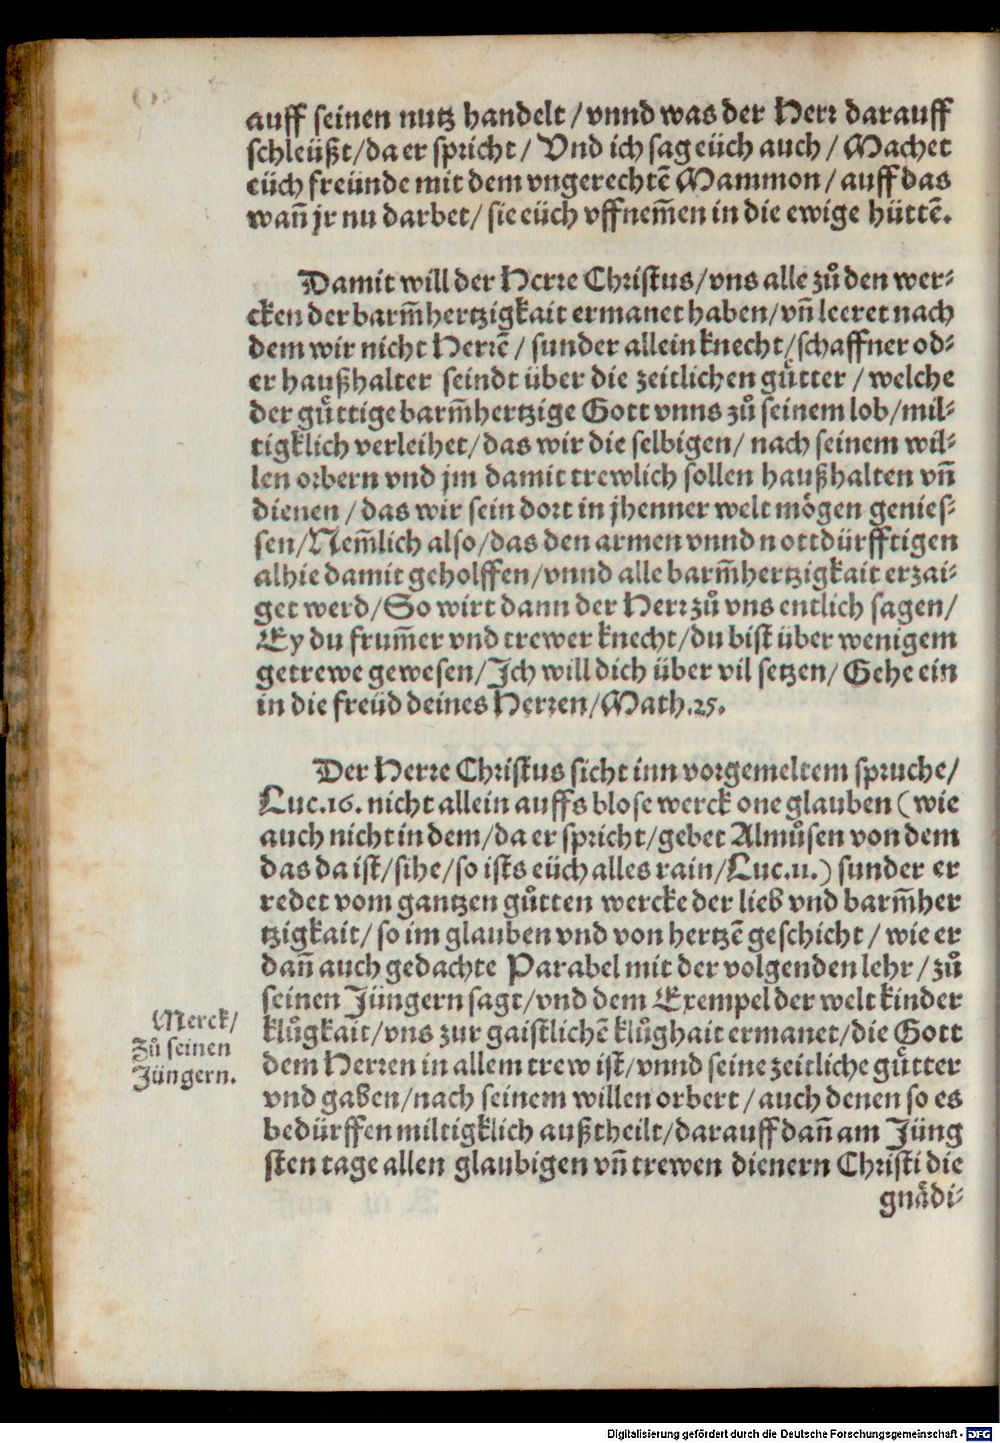 auff seinen nutz handelt / vnnd was der Herr darauff
schleüßt / da er spricht / Vnd ich sag eüch auch / Machet
eüch freünde mit dem vngerechtē Mammon / auff das
wañ jr nu darbet / sie eüch vffnem̄en in die ewige hüttē.
Damit will der Herre Christus / vns alle zů den wer⸗
cken der barm̄hertzigkait ermanet haben / vñ leeret nach
dem wir nicht Herrē / sunder allein knecht / schaffner od⸗
er haußhalter seindt über die zeitlichen gůtter / welche
der gůttige barm̄hertzige Gott vnns zů seinem lob / mil⸗
tigklich verleihet / das wir die selbigen / nach seinem wil⸗
len orbern vnd jm damit trewlich sollen haußhalten vñ
dienen / das wir sein dort in jhenner welt mögen genies⸗
sen / Nem̄lich also / das den armen vnnd nottdürfftigen
alhie damit geholffen / vnnd alle barm̄hertzigkait erzai⸗
get werd / So wirt dann der Herr zů vns entlich sagen /
Ey du frum̄er vnd trewer knecht / du bist über wenigem
getrewe gewesen / Ich will dich über vil setzen / Gehe ein
in die freüd deines Herren / Math. 25.
Der Herre Christus sicht inn vorgemeltem spruche /
Luc. 16. nicht allein auffs blose werck one glauben (wie
auch nicht in dem / da er spricht / gebet Almůsen von dem
das da ist / sihe / so ists eüch alles rain / Luc. 11.) sunder er
redet vom gantzen gůtten wercke der lieb vnd barm̄her
tzigkait / so im glauben vnd von hertzē geschicht / wie er
dañ auch gedachte Parabel mit der volgenden lehr / zů
seinen Jüngern sagt / vnd dem Exempel der welt kinder
klůgkait / vns zur gaistlichē klůghait ermanet / die Gott
dem Herren in allem trew ist / vnnd seine zeitliche gůtter
vnd gaben / nach seinem willen orbert / auch denen so es
bedürffen miltigklich außtheilt / darauff dañ am Jüng
sten tage allen glaubigen vñ trewen dienern Christi die
gnådi⸗
Merck /
Zů seinen
Jüngern.
Digitalisierung gefördert durch die Deutsche Forschungsgemeinschaft - DFG